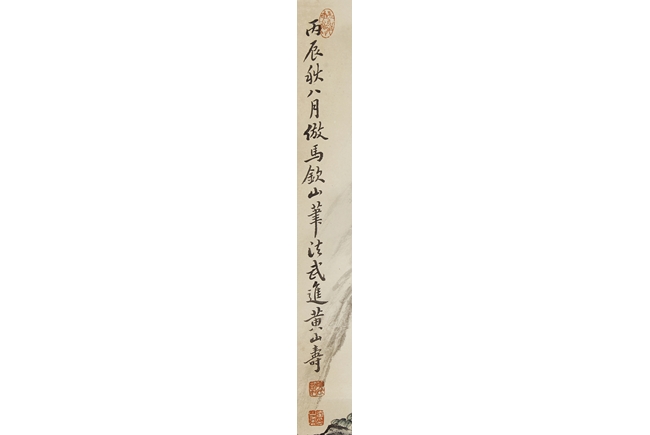 丙辰秋八月倣馬欽山筆法武進黃山壽